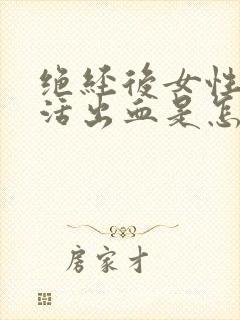 绝经後女性
活出血是怎
房家才